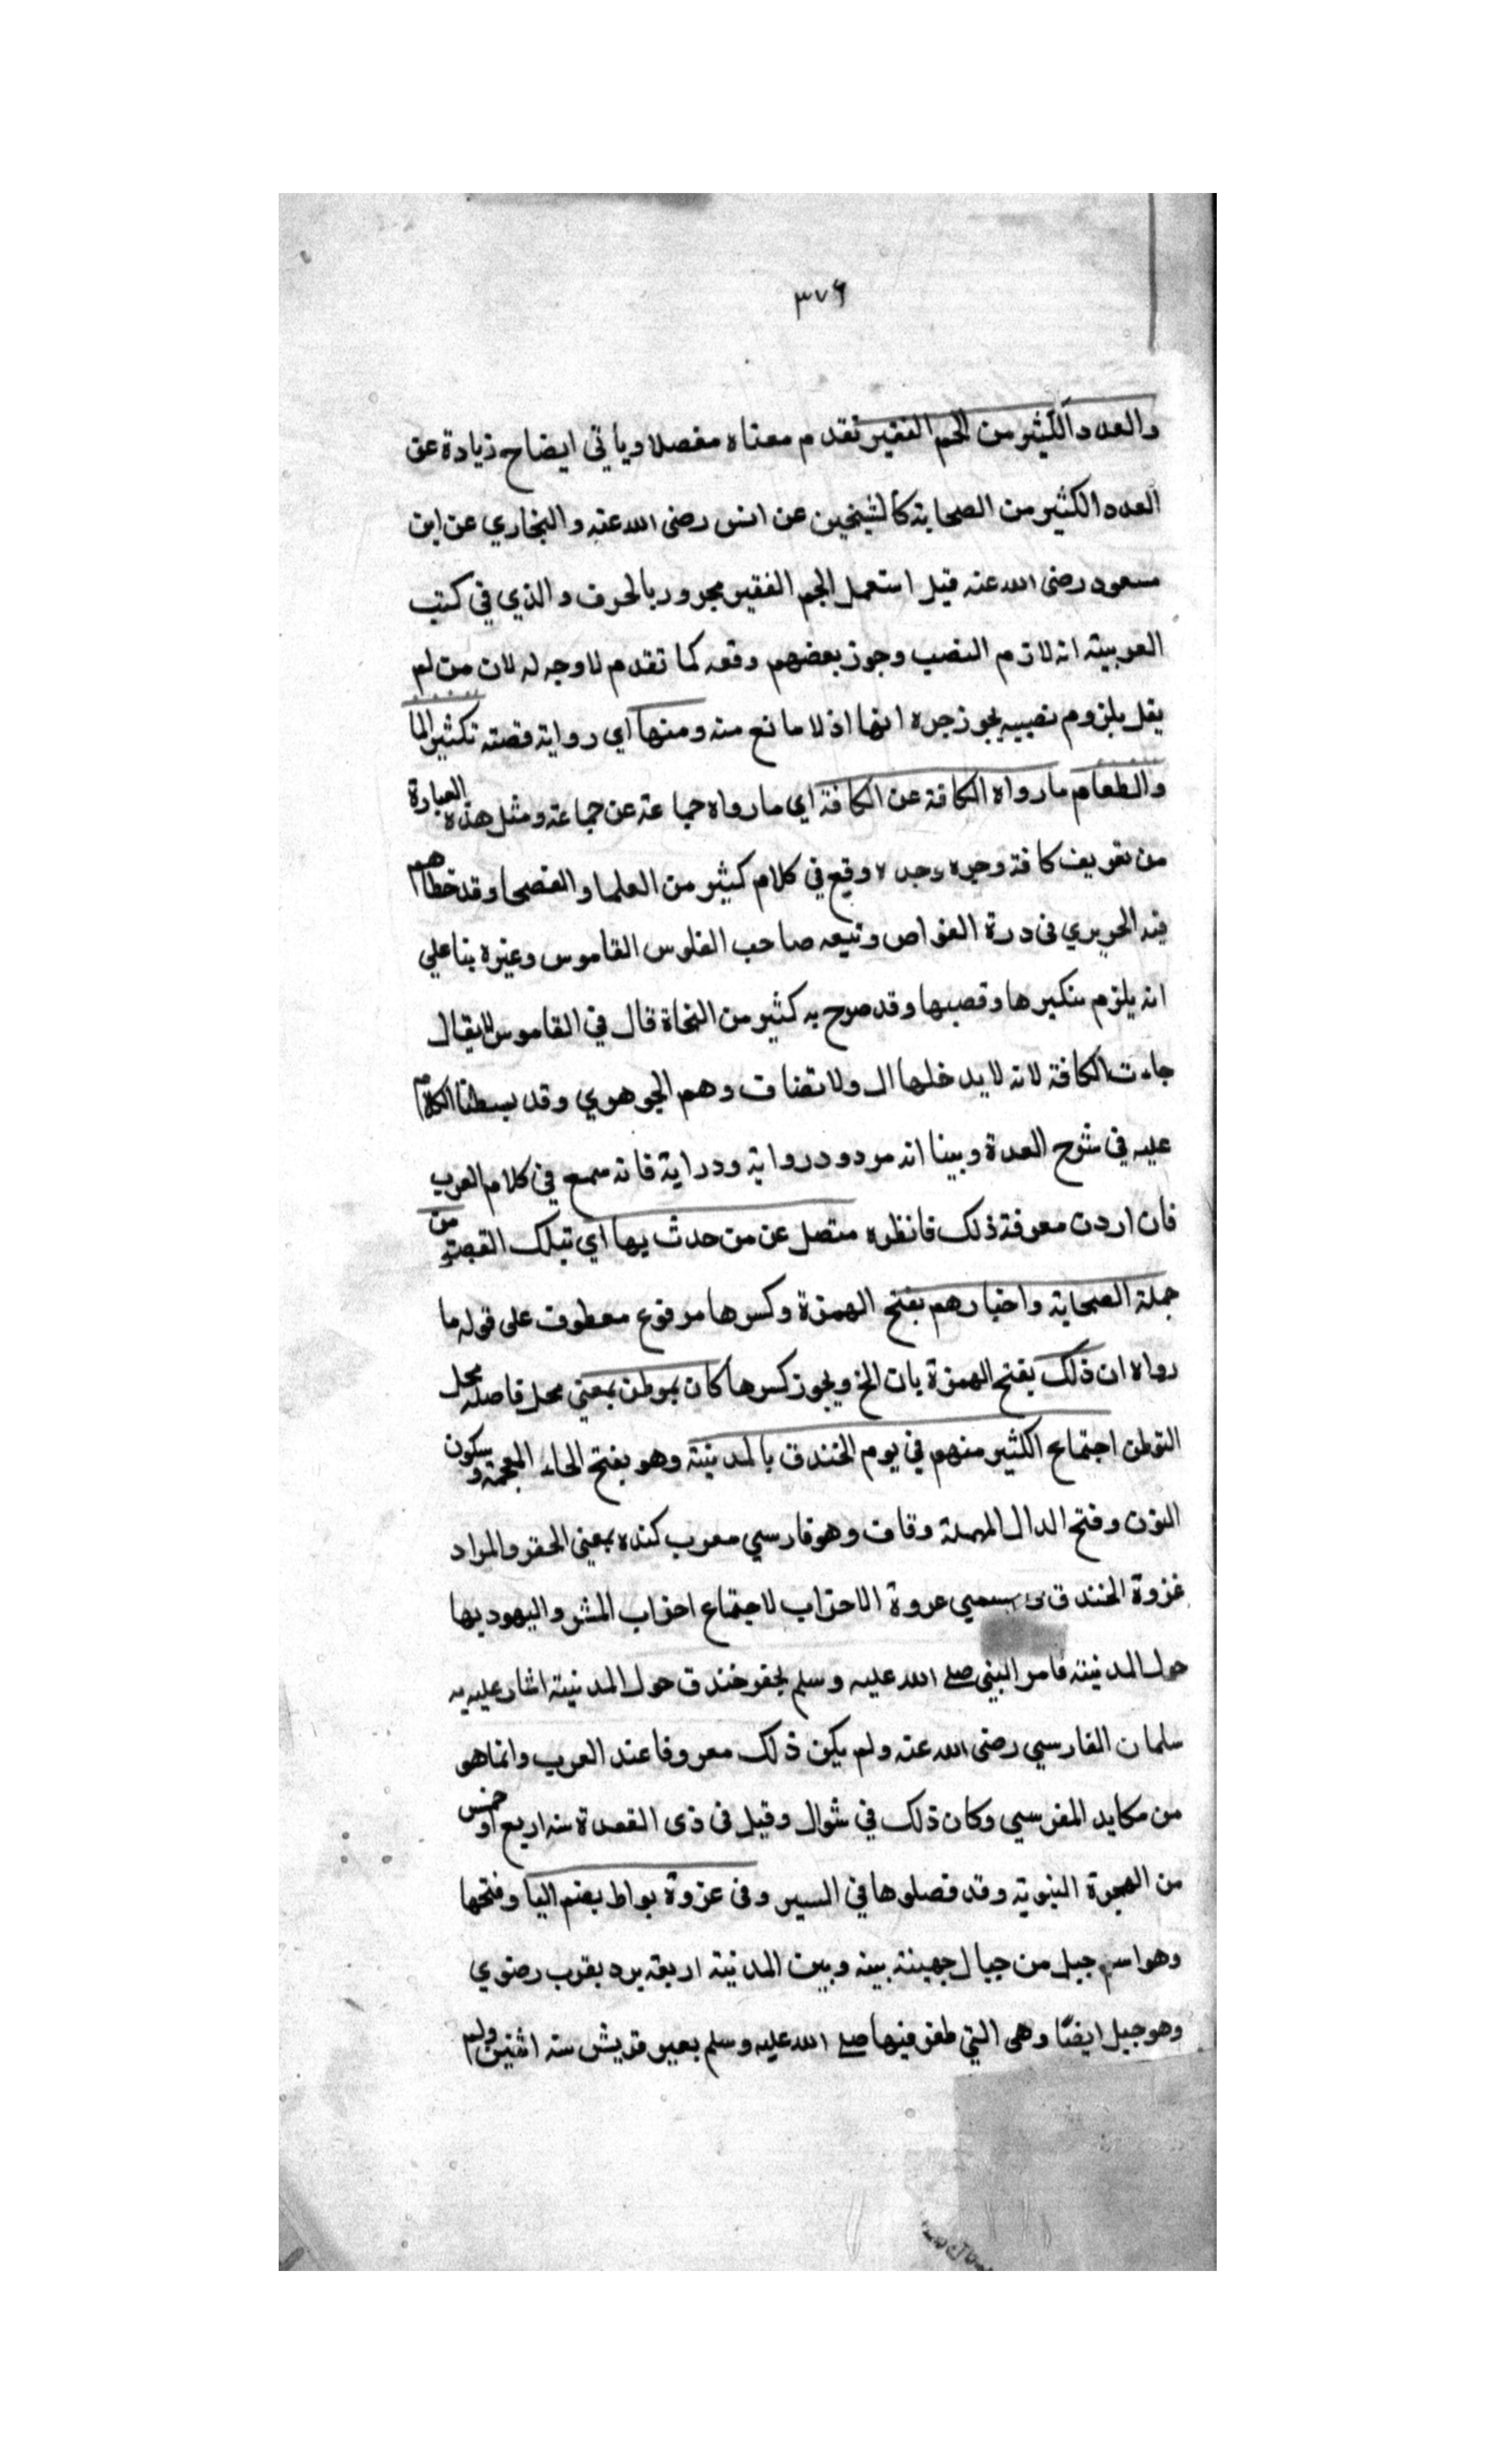 ٣٧٦
والعدد الكثير من الجم الغفير تقدم معناه مفصلا وياتي ايضاح زيادة عن
العدد الكثير من الصحابة كالشيخين عن انس رضى الله عنه والبخاري عن ابن
مسعود رضى الله عنه قيل استعمل الجم الغفير مجرور بالحرف والذي في كتب
العربية انه لازم النصب وجوز بعضهم رفعه كما تقدم لا وجه له لان من لم
يقل بلزوم نصبه يجوز جره ايضا اذ لا مانع منه ومنها اي رواية قصته تكثير الما
والطعام ما رواه الكافة عن الكافة اي ما رواه جماعة عن جماعة ومثل هذه العبارة
من تعريف كافة وجره وقع في كلام كثير من العلما والفصحا وقد خطاهم
فيه الحريري في درة الغواص وتبعه صاحب القاموس وغيره بنا على
انه يلزم تنكيرها ونصبها وقد صرح به كثير من النحاة قال في القاموس لا يقال
جاءت الكافة لانه لا يدخلها ال ولا تضاف وهم الجوهري وقد بسطنا الكلام
عليه في شرح الدرة وبينا انه مردود رواية ودراية فانه سمع في كلام العرب
فان اردت معرفة ذلك فانظره متصل عن من حدث بها اي بتلك القصة من
جملة الصحابة واخبارهم بفتح الهمزة وكسرها مرفوع معطوف على قوله ما
رواه ان ذلك بفتح الهمزة بان الخ ويجوز كسرها كان بموطن بمعنى محل فاصله محل
التوطن اجتماع الكثير منهم في يوم الخندق بالمدينة وهو بفتح الخاء المعجمة وسكون
النون وفتح الدال المهملة وقاف وهو فارسي معرب كنده بمعنى الحفر والمراد
غزوة الخندق وتسمى عزوة الاحزاب لاجتماع احزاب المشر واليهود بها
حول المدينة فامر النبي صلى الله عليه وسلم بحفر خندق حول المدينة اشار عليه به
سلمان الفارسي رضى الله عنه ولم يكن ذلك معروفا عند العرب وانما هو
من مكايد الفرس وكان ذلك في شوال وقيل في ذى القعدة سنة اربع او خمس
من الهجرة النبوية وقد فصلوها في السير وفى غزوة بواط بضم البا وفتحها
وهو اسم جبل من جبال جهينة بينه وبين المدينة اربعة برد بقرب رضوي
وهو جبل ايضًا وهى التي ظفر فيها صلى الله عليه وسلم بعير قريش سنة اثنين ولم